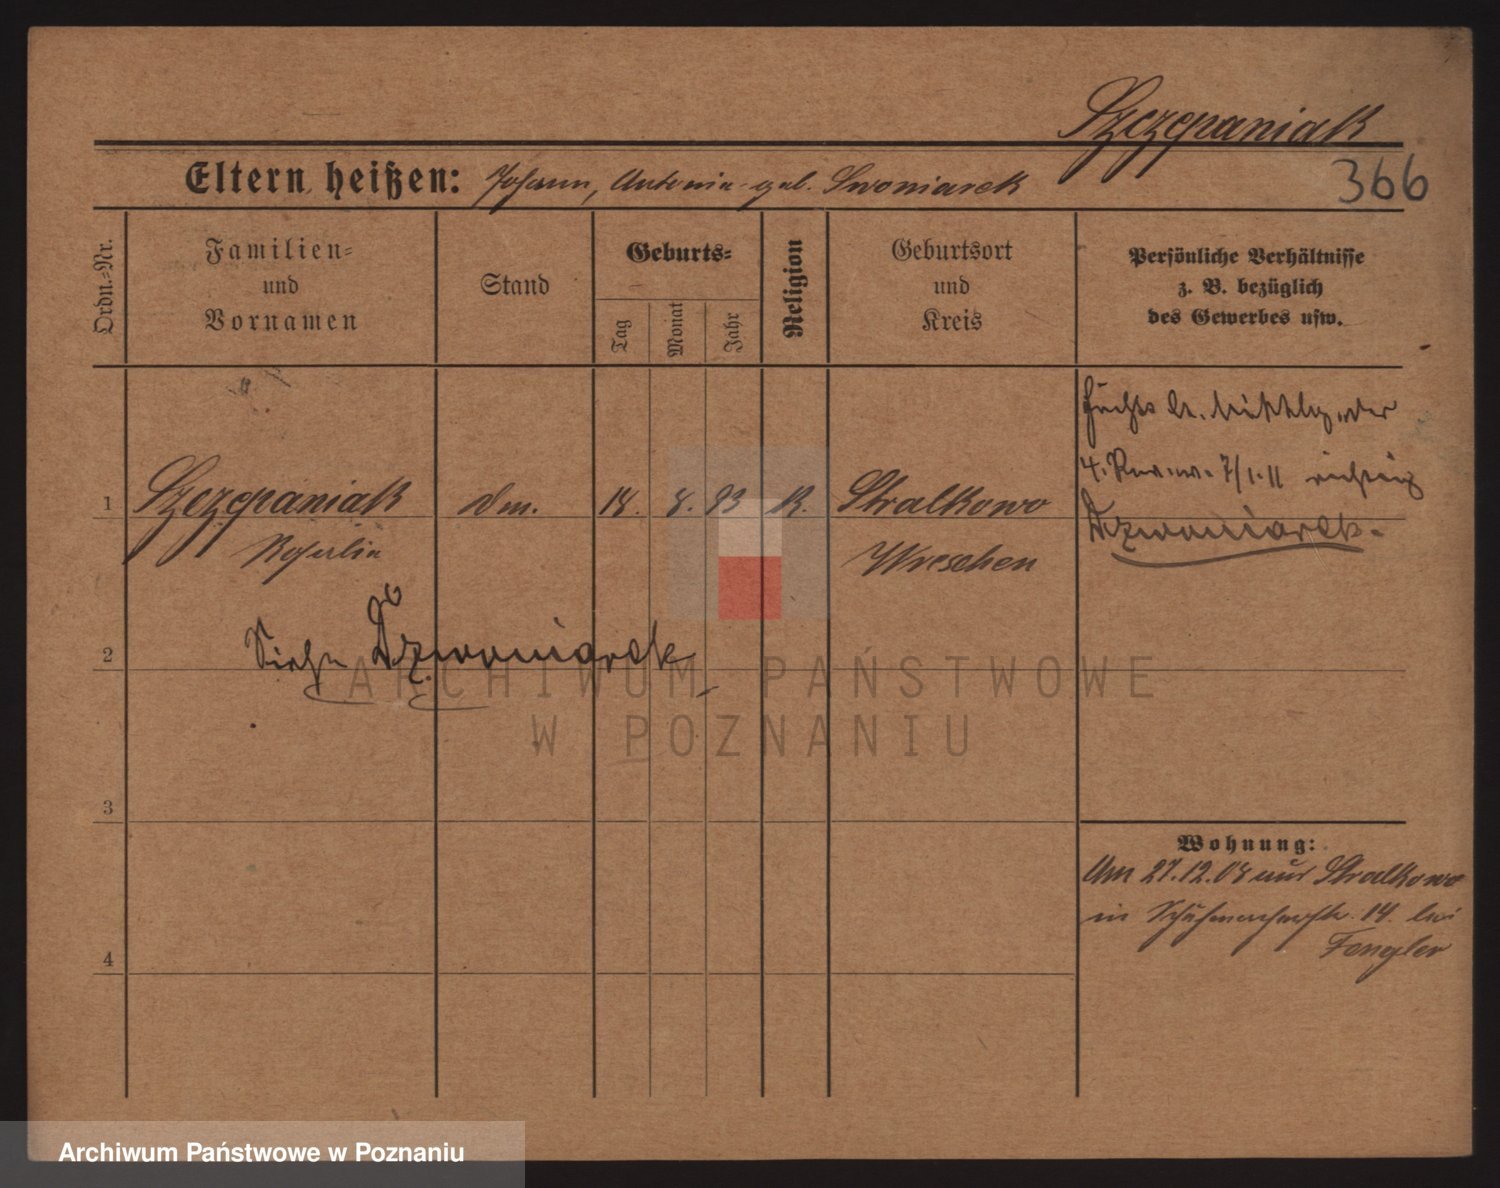 Szczepaniak
366
Eltern heißen: Johann, Antonia geb. Swoniarek
Ordn.-Nr.
Familien-
und
Vornamen
Stand
Geburts-
Tag
Monat
Jahr
Religion
Geburtsort
und
Kreis
Persönliche Verhältnisse
z. B. bezüglich
des Gewerbes usw.
1 Szczepaniak 18. 8. 93 K. Stralkowo
Wreschen
4. 7/1.11 richtig
Dzwoniarek.
2 Siehe Dzwoniarek
3
4
Wohnung:
Am 27.12.08 aus Stralkowo
in Schuhmacherstr. 14. bei
Fengler
ARCHIWUM PAŃSTWOWE
W POZNANIU
Archiwum Państwowe w Poznaniu